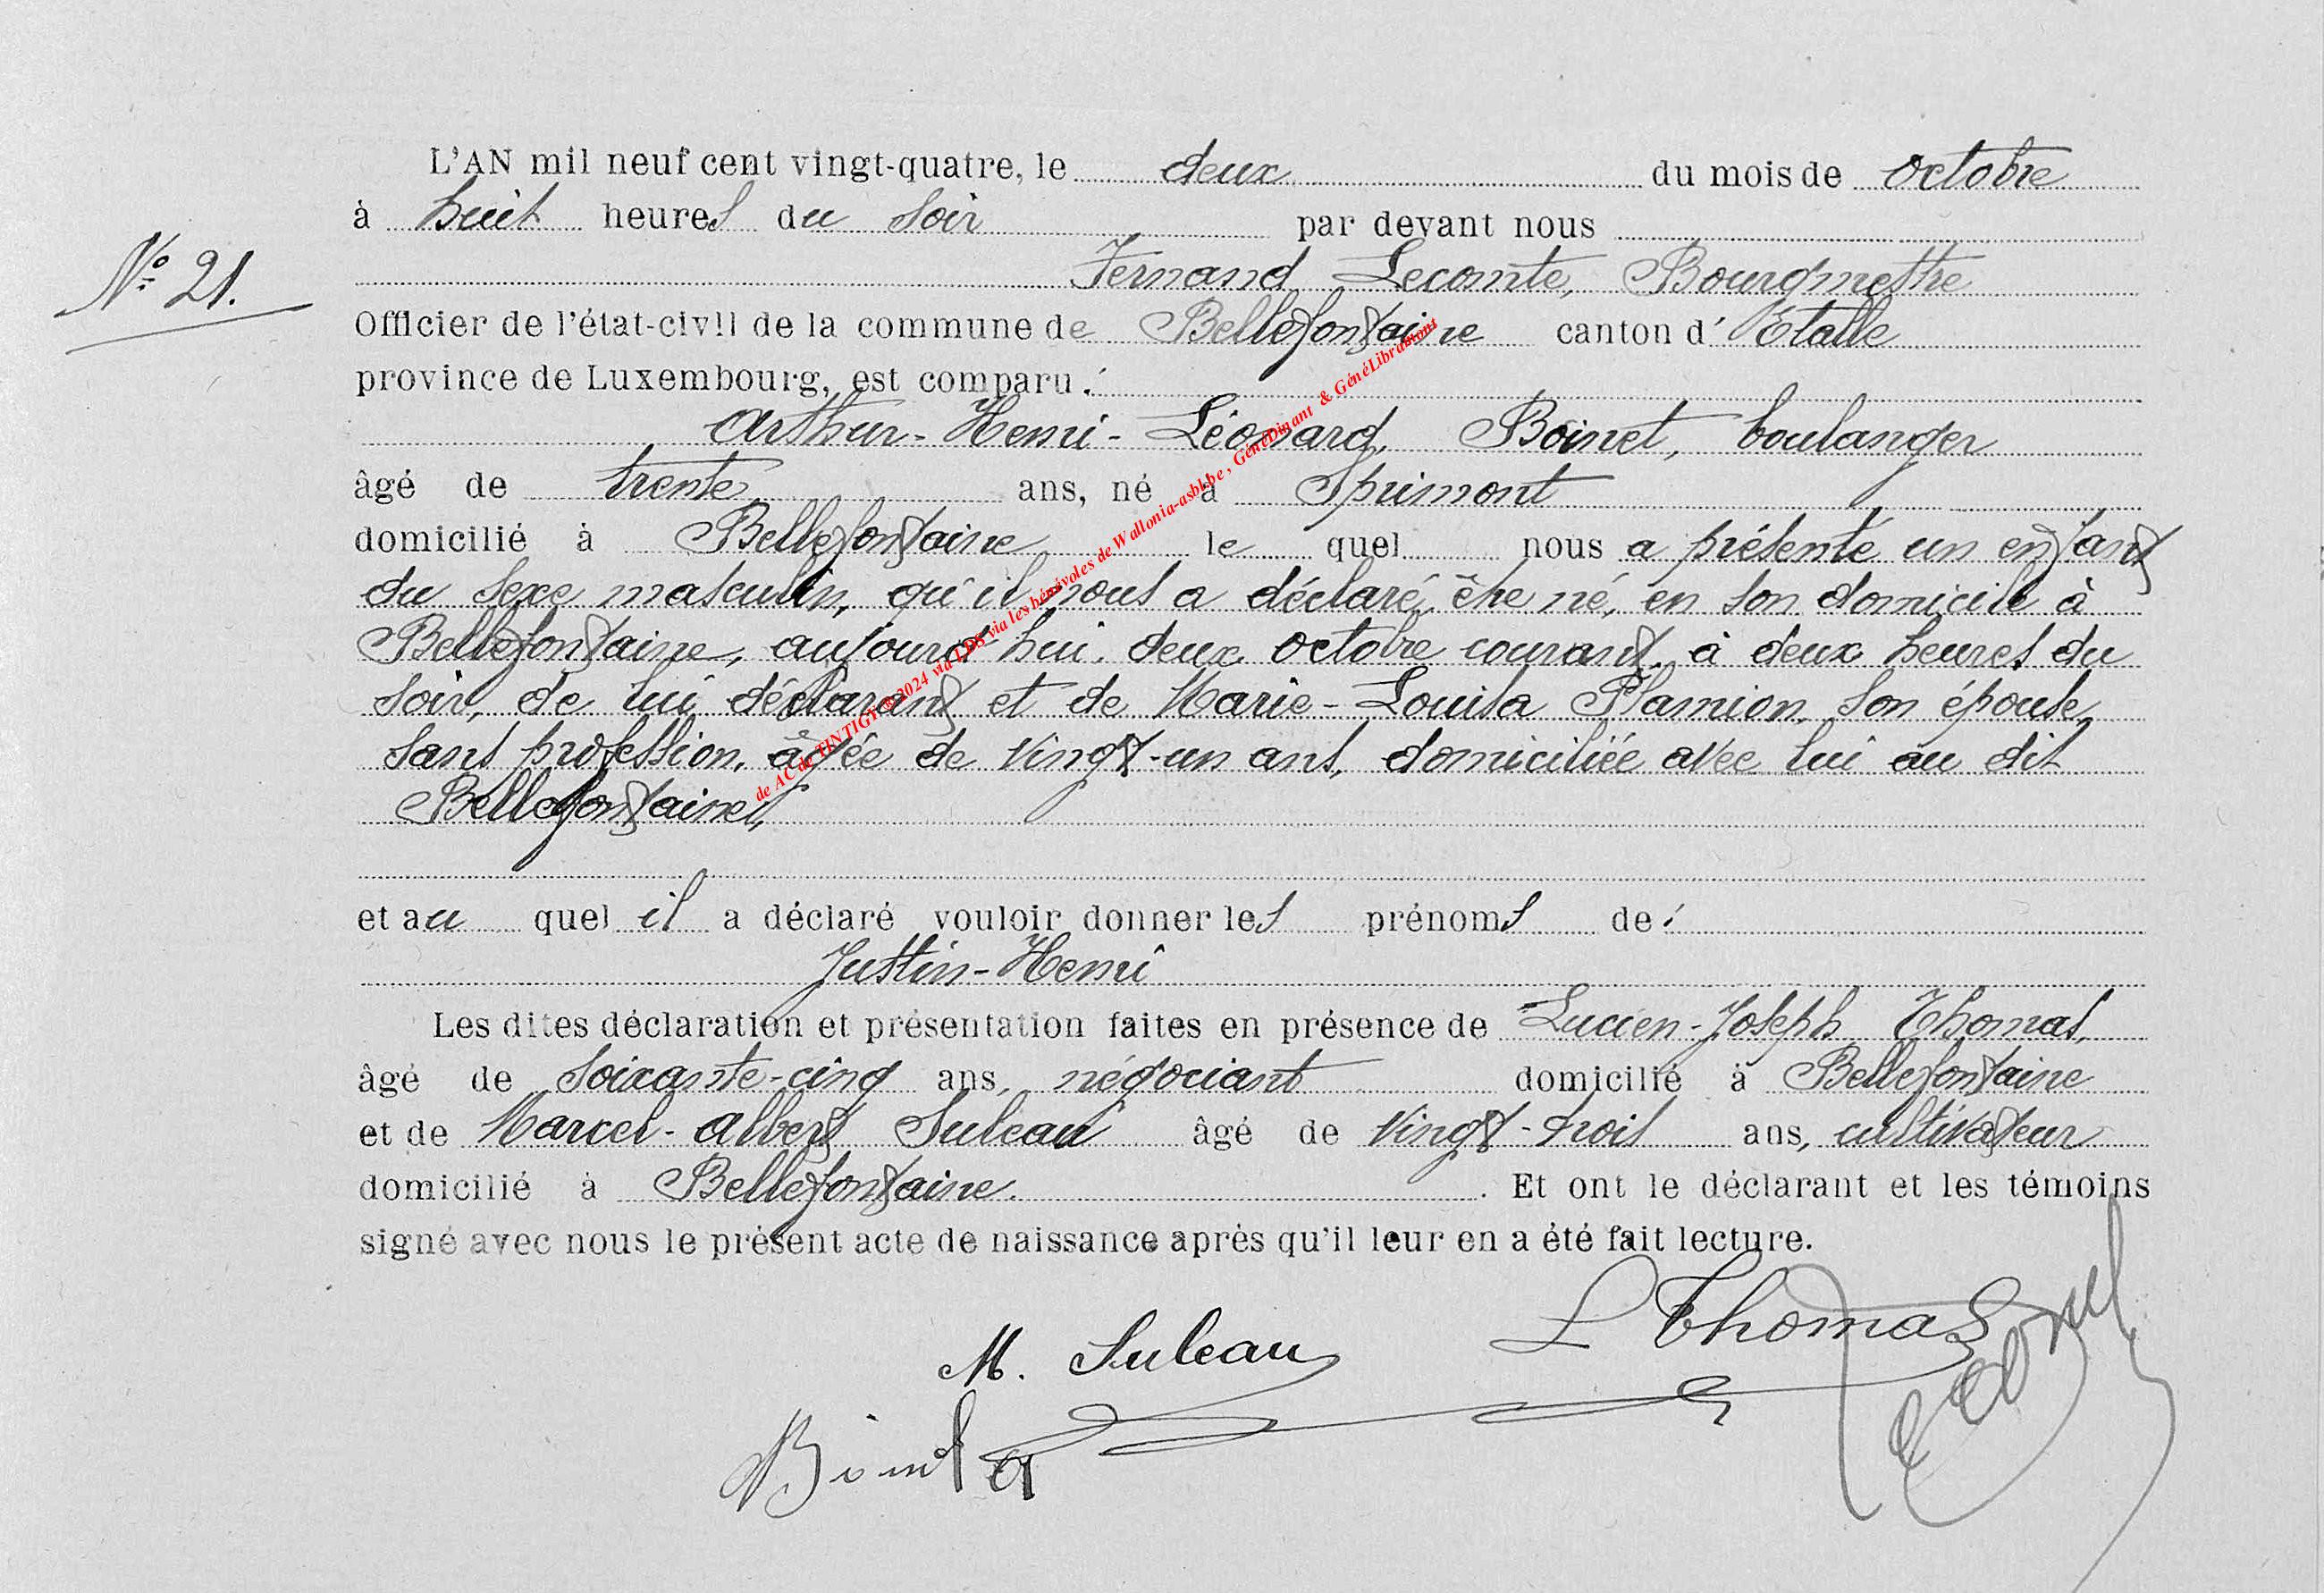 L'AN mil neuf cent vingt-quatre, le deux du mois de octobre
à huit heures du soir par devant nous
N° 21.
Fernand Lecomte, Bourgmestre
Officier de l'état-civil de la commune de Bellefontaine canton d'Etalle
province de Luxembourg, est comparu :
Arthur-Henri-Léonard Boinet, boulanger
âgé de trente ans, né à Sprimont
domicilié à Bellefontaine le quel nous a présenté un enfant
du sexe masculin, qu'il nous a déclaré être né, en son domicile à
Bellefontaine, aujourd'hui deux octobre courant, à deux heures du
soir, de lui déclarant et de Marie-Louisa Plamion, son épouse,
sans profession, âgée de vingt-un ans, domiciliée avec lui au dit
Bellefontaine,
et au quel il a déclaré vouloir donner les prénoms de :
Justin-Henri
Les dites déclaration et présentation faites en présence de Lucien-Joseph Thomas,
âgé de soixante-cinq ans, négociant domicilié à Bellefontaine
et de Marcel-Albert Suleau âgé de vingt-trois ans, cultivateur
domicilié à Bellefontaine. Et ont le déclarant et les témoins
signé avec nous le présent acte de naissance après qu'il leur en a été fait lecture.
M. Suleau
L Thomas
de AC de TINTIGY ©2024 via LDS via les bénévoles de Wallonia-asbl.be, GénéDinant & GénéLibramont